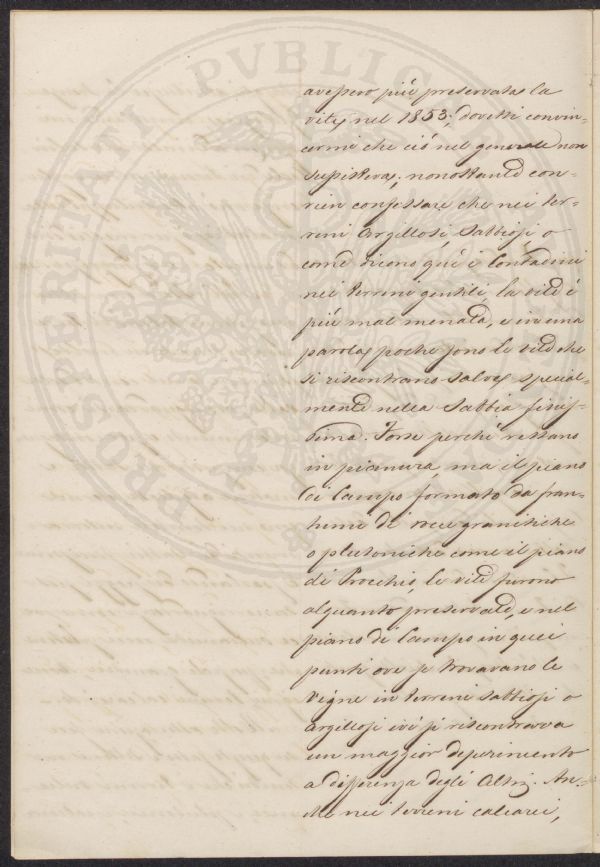 PROSPERITATI PVBLICAE
avessero più preservata la
vite, nel 1853, dovetti convin-
cermi che ciò nel generale non
sussisteva; nonostante con-
vien confessare che nei ter-
reni Argillosi, Sabbiosi o
come dicono quì i Contadini
nei terreni gentili, la vite è
più mal menata, e in una
parola, poche sono le vite che
si riscontrano salve, special-
mente nella Sabbia finis-
sima. Forse perchè restano
in pianura, ma il piano
di Campo formato da fran-
tumi di rocce granitiche
o plutoniche come il piano
di Procchio, le vite furono
alquanto preservate, e nel
piano di Campo in quei
punti ove si trovavano le
vigne in terreni sabbiosi o
argillosi ivi si riscontrava
un maggior deperimento
a differenza degli Altri. An-
che nei terreni calcarei,